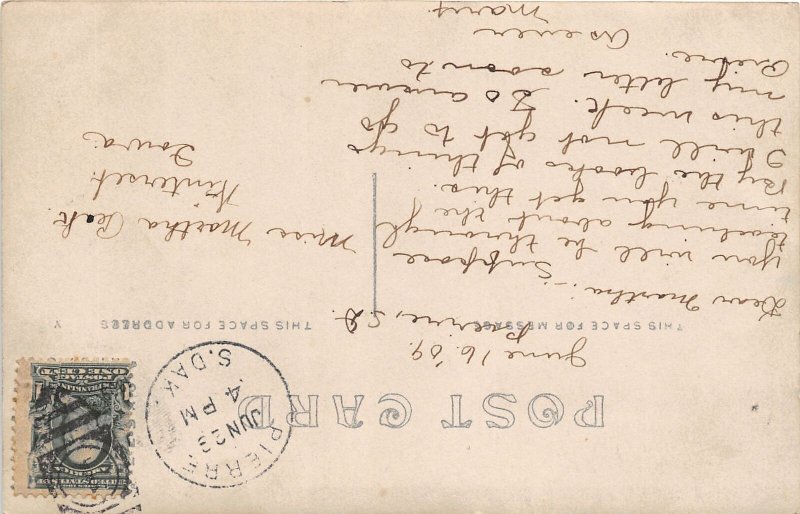 POST CARD
THIS SPACE FOR MESSAGE
THIS SPACE FOR ADDRESS
PIERRE
JUN 23
4 PM
S.DAK.
ONE CENT
Pierre, S.D.
June 16. '09.
Dear Martha:- Suppose
you will be through
teaching about the
time you get this.
By the looks of things
I will not get to go
this week. So answer
my letter soon to
Pierre.
As ever
Mary
Miss Martha Peak
Winterset.
Iowa.